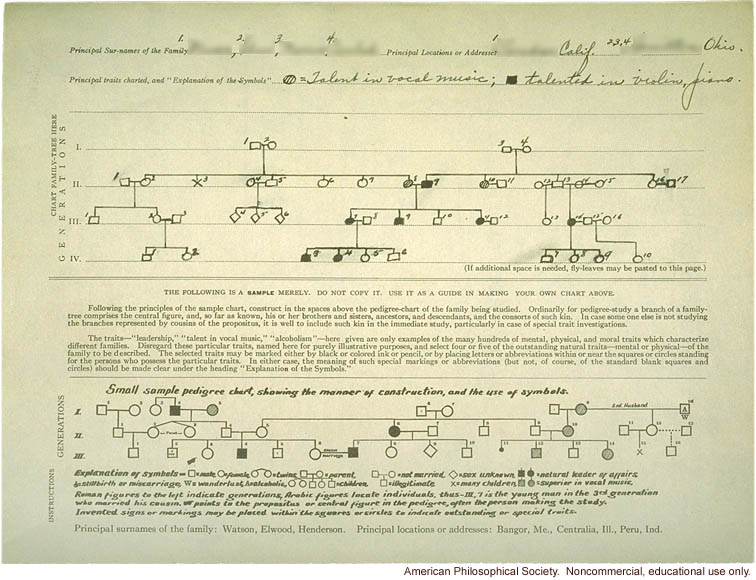 1. 2. 3. 4. 1 2,3,4
Principal Sur-names of the Family , , , Principal Locations or Address? Calif. Ohio.
Principal traits charted, and "Explanation of the Symbols" = Talent in vocal music; ■ talented in violin, piano.
CHART FAMILY-TREE HERE
GENERATIONS
I.
II.
III.
IV.
(If additional space is needed, fly-leaves may be pasted to this page.)
THE FOLLOWING IS A SAMPLE MERELY. DO NOT COPY IT. USE IT AS A GUIDE IN MAKING YOUR OWN CHART ABOVE.
Following the principles of the sample chart, construct in the spaces above the pedigree-chart of the family being studied. Ordinarily for pedigree-study a branch of a family-
tree comprises the central figure, and, so far as known, his or her brothers and sisters, ancestors, and descendants, and the consorts of such kin. In case some one else is not studying
the branches represented by cousins of the propositus, it is well to include such kin in the immediate study, particularly in case of special trait investigations.
The traits—"leadership," "talent in vocal music," "alcoholism"—here given are only examples of the many hundreds of mental, physical, and moral traits which characterize
different families. Disregard these particular traits, named here for purely illustrative purposes, and select four or five of the outstanding natural traits—mental or physical—of the
family to be described. The selected traits may be marked either by black or colored ink or pencil, or by placing letters or abbreviations within or near the squares or circles standing
for the persons who possess the particular traits. In either case, the meaning of such special markings or abbreviations (but not, of course, of the standard blank squares and
circles) should be made clear under the heading "Explanation of the Symbols."
Small sample pedigree chart, showing the manner of construction, and the use of symbols.
GENERATIONS
I.
2nd Husband
II.
III.
INSTRUCTIONS
Explanation of symbols= male, female, twins, parent, not married, sex unknown, natural leader of affairs,
stillbirth or miscarriage, W=wanderlust, A=alcoholic, children, illegitimate many children, Superior in vocal music,
Roman figures to the left indicate generations, Arabic figures locate individuals, thus-III, 7 is the young man in the 3rd generation
who married his cousin. points to the propositus or central figure in the pedigree, often the person making the study.
Invented signs or markings may be placed within the squares or circles to indicate outstanding or special traits.
Principal surnames of the family: Watson, Elwood, Henderson. Principal locations or addresses: Bangor, Me., Centralia, Ill., Peru, Ind.
American Philosophical Society. Noncommercial, educational use only.